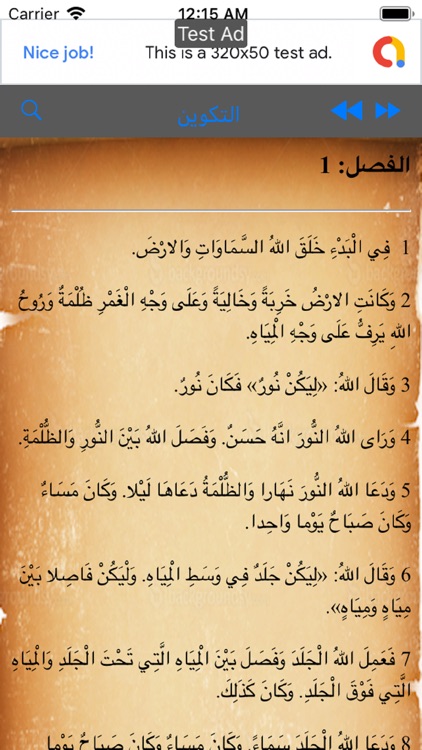 Carrier 12:15 AM
Nice job! This is a 320x50 test ad.
Test Ad
التكوين
الفصل: 1
1 فِي الْبَدْءِ خَلَقَ اللهُ السَّمَاوَاتِ وَالارْضَ.
2 وَكَانَتِ الارْضُ خَرِبَةً وَخَالِيَةً وَعَلَى وَجْهِ الْغَمْرِ ظُلْمَةٌ وَرُوحُ
اللهِ يَرِفُّ عَلَى وَجْهِ الْمِيَاهِ.
3 وَقَالَ اللهُ: «لِيَكُنْ نُورٌ» فَكَانَ نُورٌ.
4 وَرَاى اللهُ النُّورَ انَّهُ حَسَنٌ. وَفَصَلَ اللهُ بَيْنَ النُّورِ وَالظُّلْمَةِ.
5 وَدَعَا اللهُ النُّورَ نَهَارا وَالظُّلْمَةُ دَعَاهَا لَيْلا. وَكَانَ مَسَاءٌ
وَكَانَ صَبَاحٌ يَوْما وَاحِدا.
6 وَقَالَ اللهُ: «لِيَكُنْ جَلَدٌ فِي وَسَطِ الْمِيَاهِ. وَلْيَكُنْ فَاصِلا بَيْنَ
مِيَاهٍ وَمِيَاهٍ».
7 فَعَمِلَ اللهُ الْجَلَدَ وَفَصَلَ بَيْنَ الْمِيَاهِ الَّتِي تَحْتَ الْجَلَدِ وَالْمِيَاهِ
الَّتِي فَوْقَ الْجَلَدِ. وَكَانَ كَذَلِكَ.
8 وَدَعَا اللهُ الْجَلَدَ سَمَاءً. وَكَانَ مَسَاءٌ وَكَانَ صَبَاحٌ يَوْما